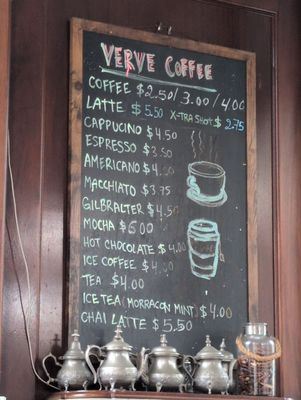 VERVE COFFEE
COFFEE $2.50/3.00/4.00
LATTE $5.50 X-TRA SHOT $2.75
CAPPUCINO $4.50
ESPRESSO $3.50
AMERICANO $4.50
MACCHIATO $3.75
GILBRALTER $4.50
MOCHA $6.00
HOT CHOCOLATE $4.00
ICE COFFEE $4.00
TEA $4.00
ICE TEA (MORRACON MINT) $4.00
CHAI LATTE $5.50